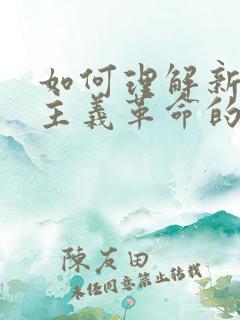 如何理解新
主義革命的
陳友田
未经同意禁止转载